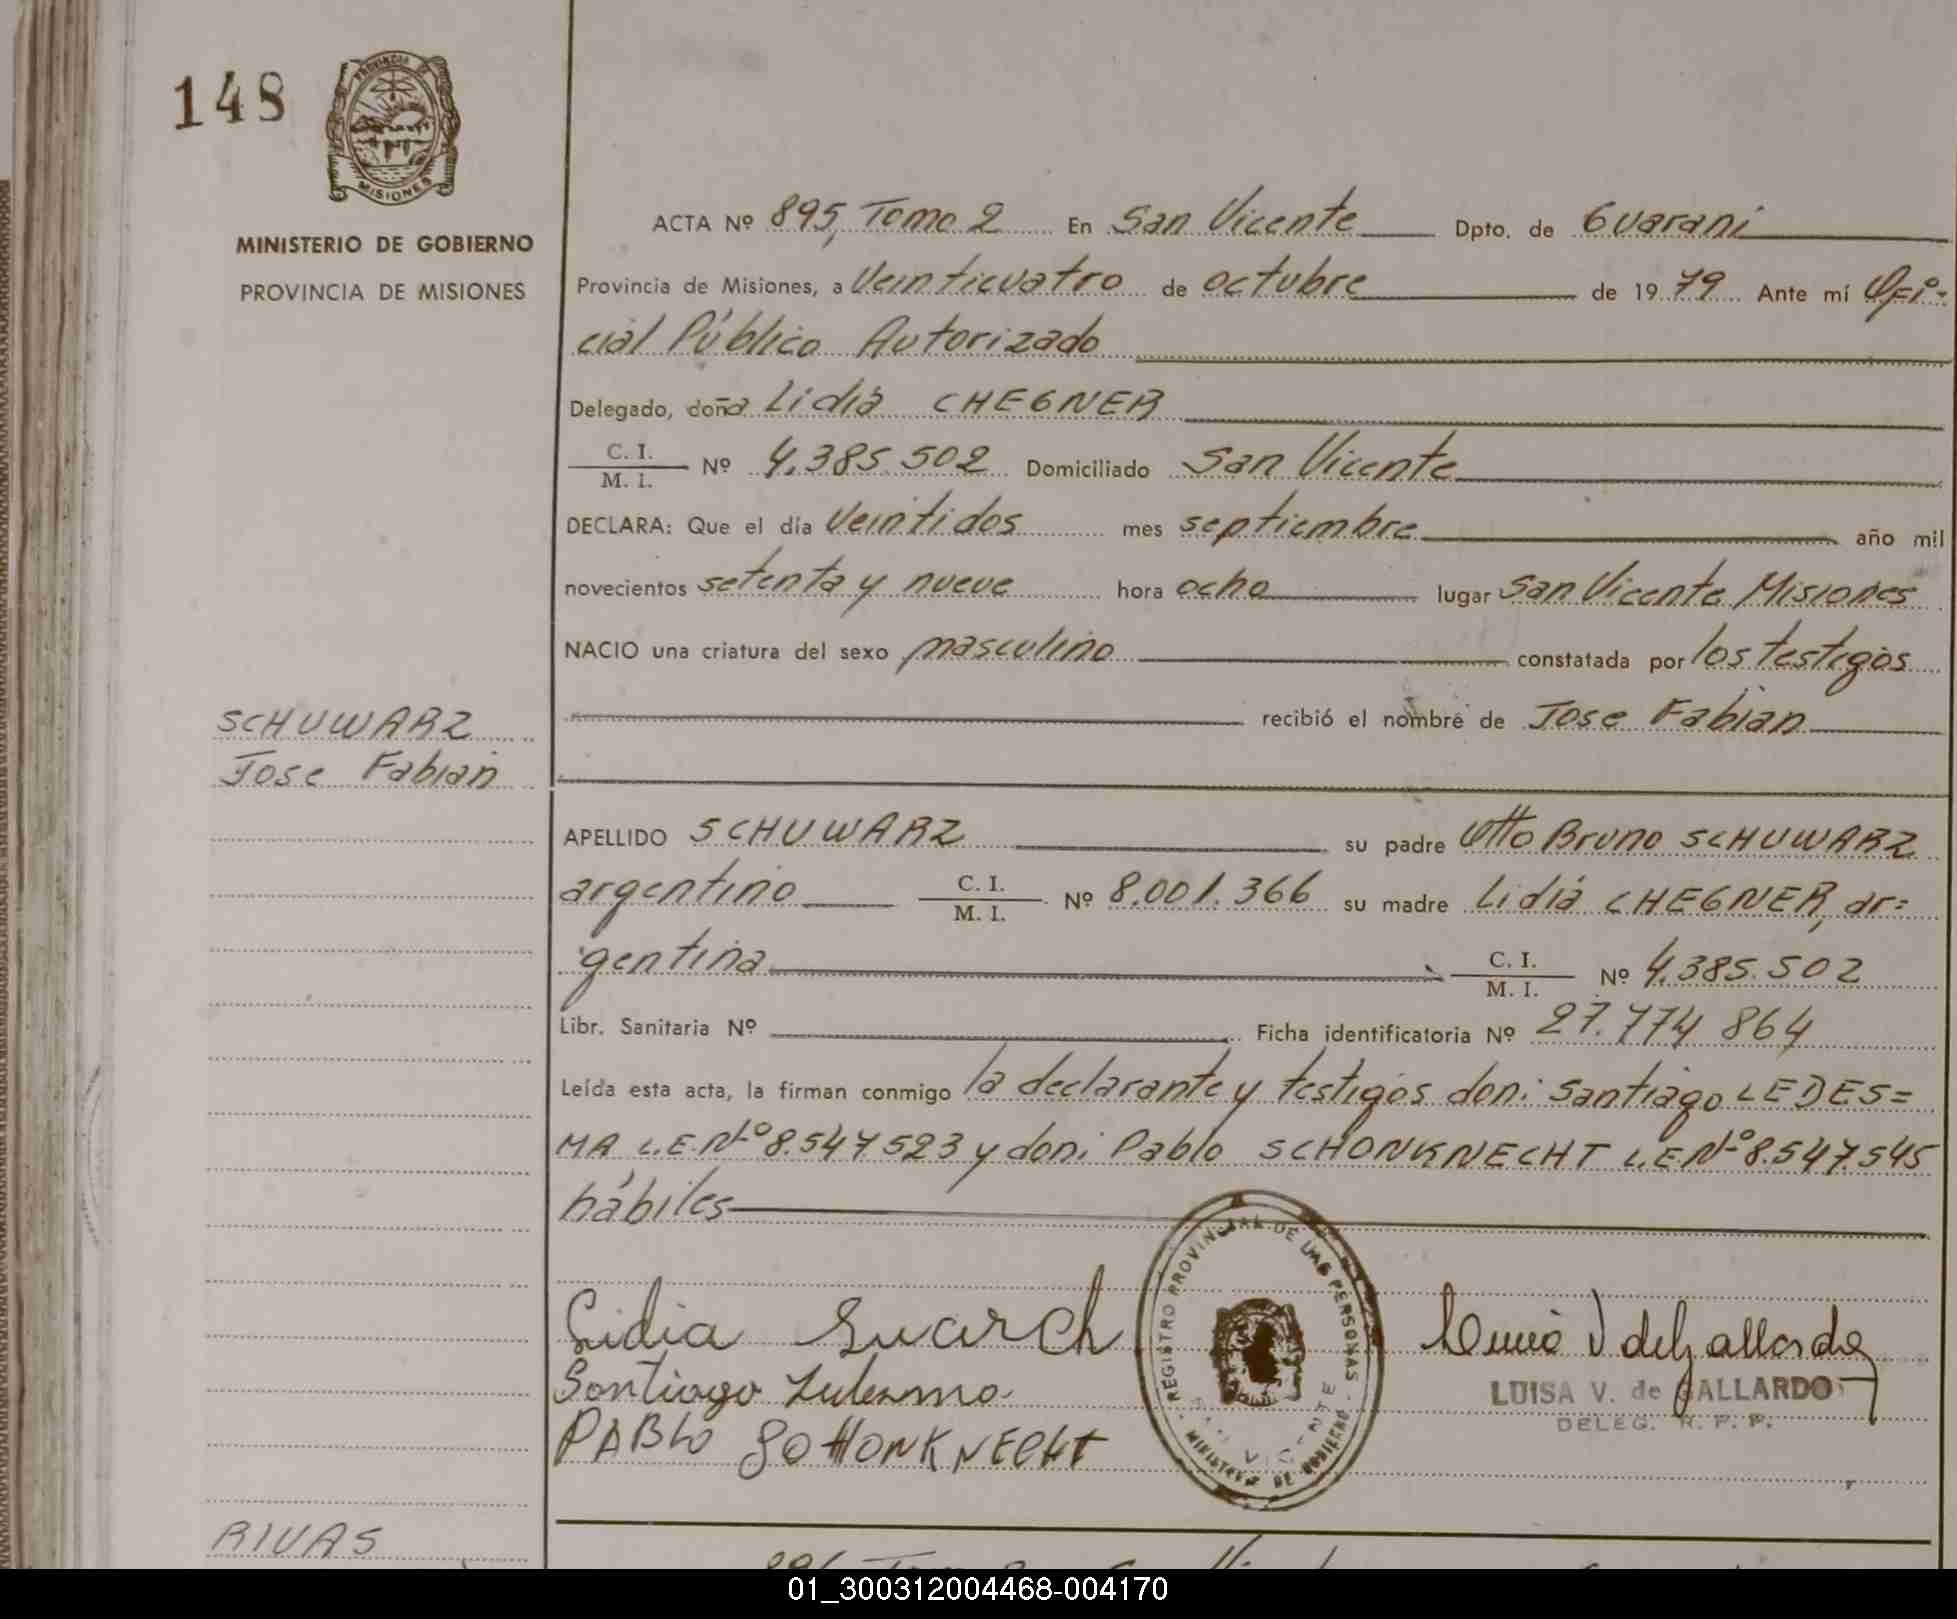 148
PROVINCIA DE
MISIONES
MINISTERIO DE GOBIERNO
PROVINCIA DE MISIONES
ACTA Nº 895, Tomo 2 En San Vicente Dpto. de Guarani
Provincia de Misiones, a Veinticuatro de octubre de 1979 Ante mí Ofi-
cial Público Autorizado
Delegado, doña Lidia CHEGNER
C. I.
M. I. Nº 4.385.502 Domiciliado San Vicente
DECLARA: Que el día Veintidos mes septiembre año mil
novecientos setenta y nueve hora ocho lugar San Vicente Misiones
NACIO una criatura del sexo masculino constatada por los testigos
recibió el nombre de Jose Fabian
SCHUWARZ
Jose Fabian
APELLIDO SCHUWARZ su padre Otto Bruno SCHUWARZ
argentino C. I.
M. I. Nº 8.001.366 su madre Lidia CHEGNER, ar=
gentina C. I.
M. I. Nº 4.385.502
Libr. Sanitaria Nº Ficha identificatoria Nº 27.774 864
Leída esta acta, la firman conmigo la declarante y testigos don: Santiago LEDES=
MA L.E.Nº 8.547523 y don: Pablo SCHONKNECHT L.E Nº 8.547.545
hábiles
REGISTRO PROVINCIAL DE LAS PERSONAS
MINISTERIO DE GOBIERNO
Lidia Suarch
Santiago
PABLO SOHONKNECHT
LUISA V. de GALLARDO
DELEG. R. P. P.
RIVAS
01_300312004468-004170